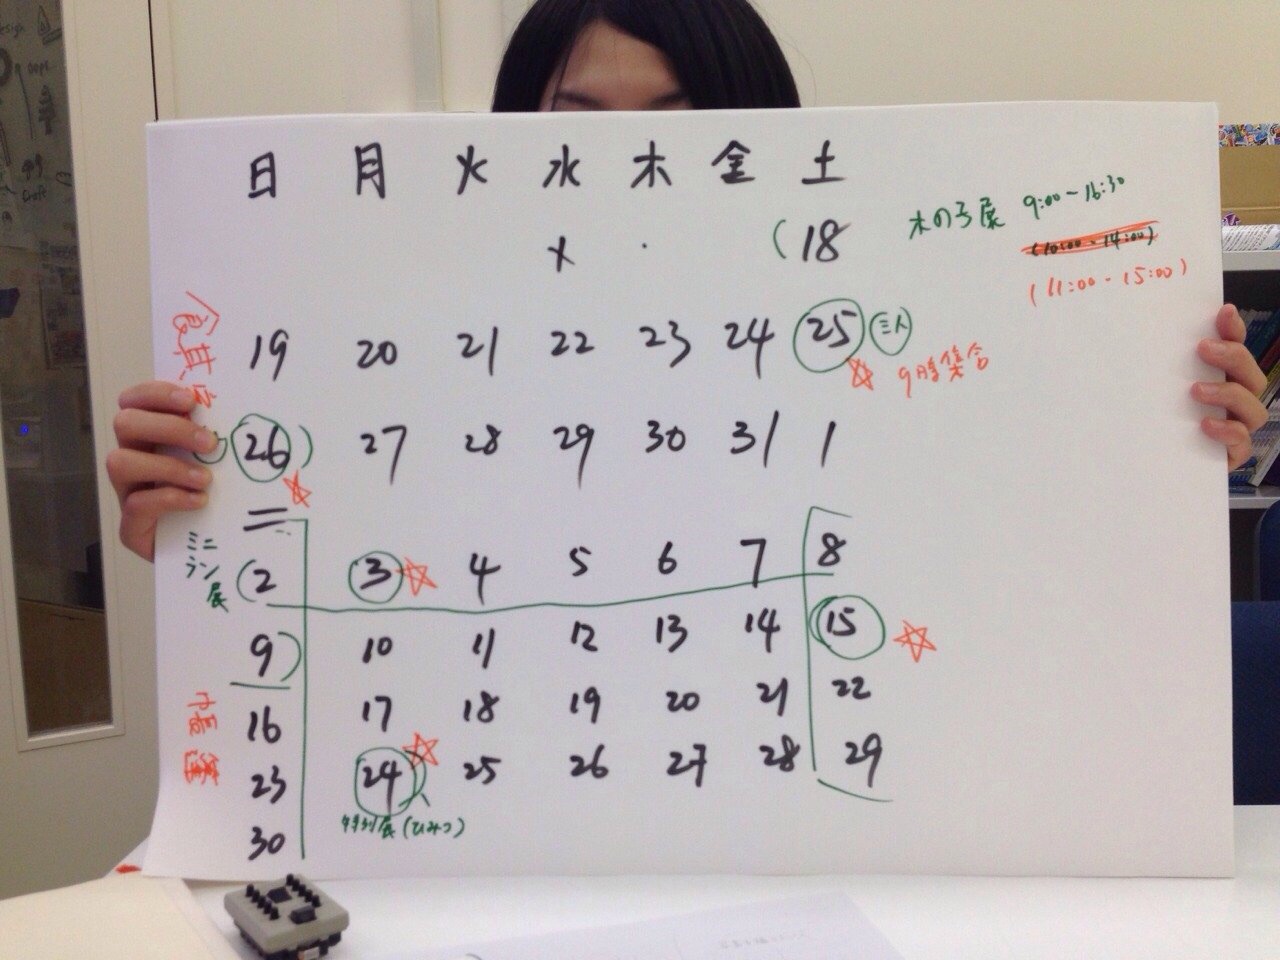 日 月 火 水 木 金 土
(18 木の子展 9:00-16:30
(10:00-14:00)
(11:00-15:00)
19 20 21 22 23 24 25 三人
9時集合
(26) 27 28 29 30 31 1
ミニ
ラン
展
(2 3 4 5 6 7 8
9) 10 11 12 13 14 15
16 17 18 19 20 21 22
23 24 25 26 27 28 29
特別展(ひみつ)
30